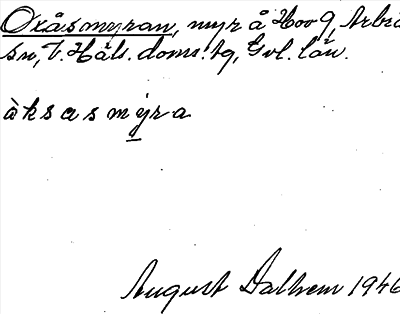 Oxåsmyran, myr å Hoo 9, Arbrå
sn, V. Häls. doms. tg, Gvl. län.
àksasmýra
August Dalhem 1946